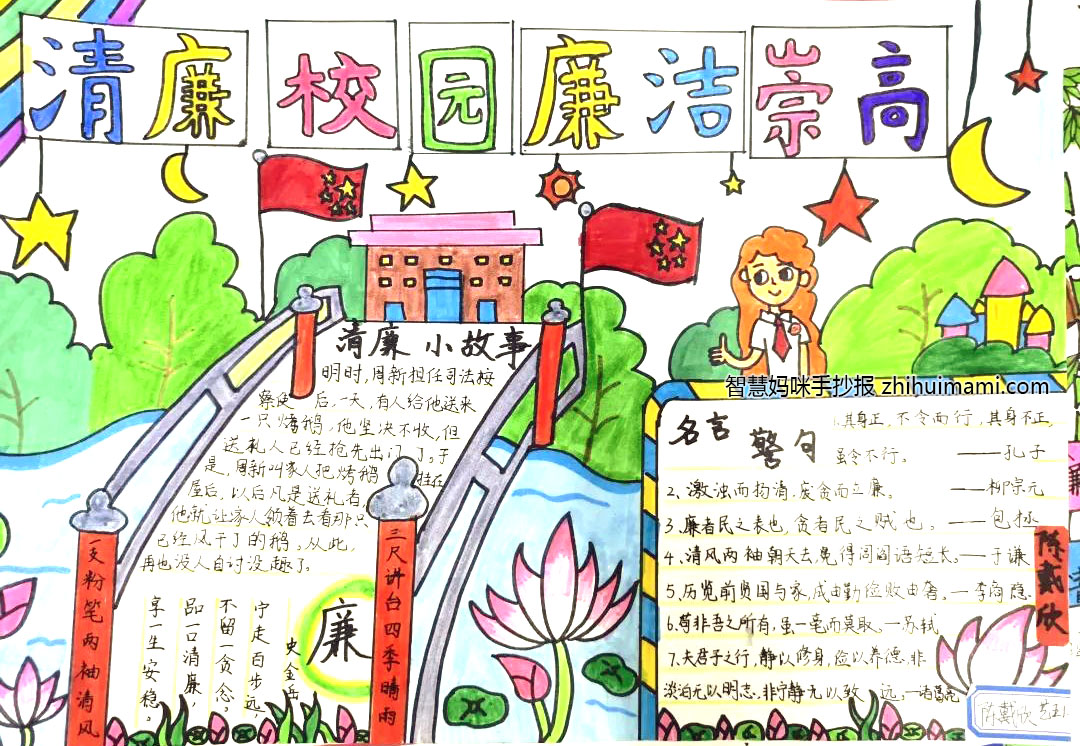 清廉校园廉洁崇高
清廉小故事
明时,周新担任司法按
察使后,一天,有人给他送来
一只烤鹅,他坚决不收,但
送礼人已经抢先出门了。于
是,周新叫家人把烤鹅挂在
屋后,以后凡是送礼者,
他就让家人领着去看那只
已经风干了的鹅。从此,
再也没人自讨没趣了。
一支粉笔两袖清风
三尺讲台四季晴雨
宁走百步远,
不留一贪念,
品一口清廉,
享一生安稳。
史金岳
廉
智慧妈咪手抄报 zhihuimami.com
名言警句
1.其身正,不令而行,其身不正,
虽令不行。 ——孔子
2、激浊而扬清,废贪而立廉。 ——柳宗元
3、廉者民之表也,贪者民之贼也。——包拯
4、清风两袖朝天去,免得闾阎话短长。—于谦
5、历览前贤国与家,成由勤俭败由奢。—李商隐
6、苟非吾之所有,虽一毫而莫取。—苏轼
7、夫君子之行,静以修身,俭以养德,非
淡泊无以明志,非宁静无以致远。—诸葛亮
陈戴欣
陈戴欣